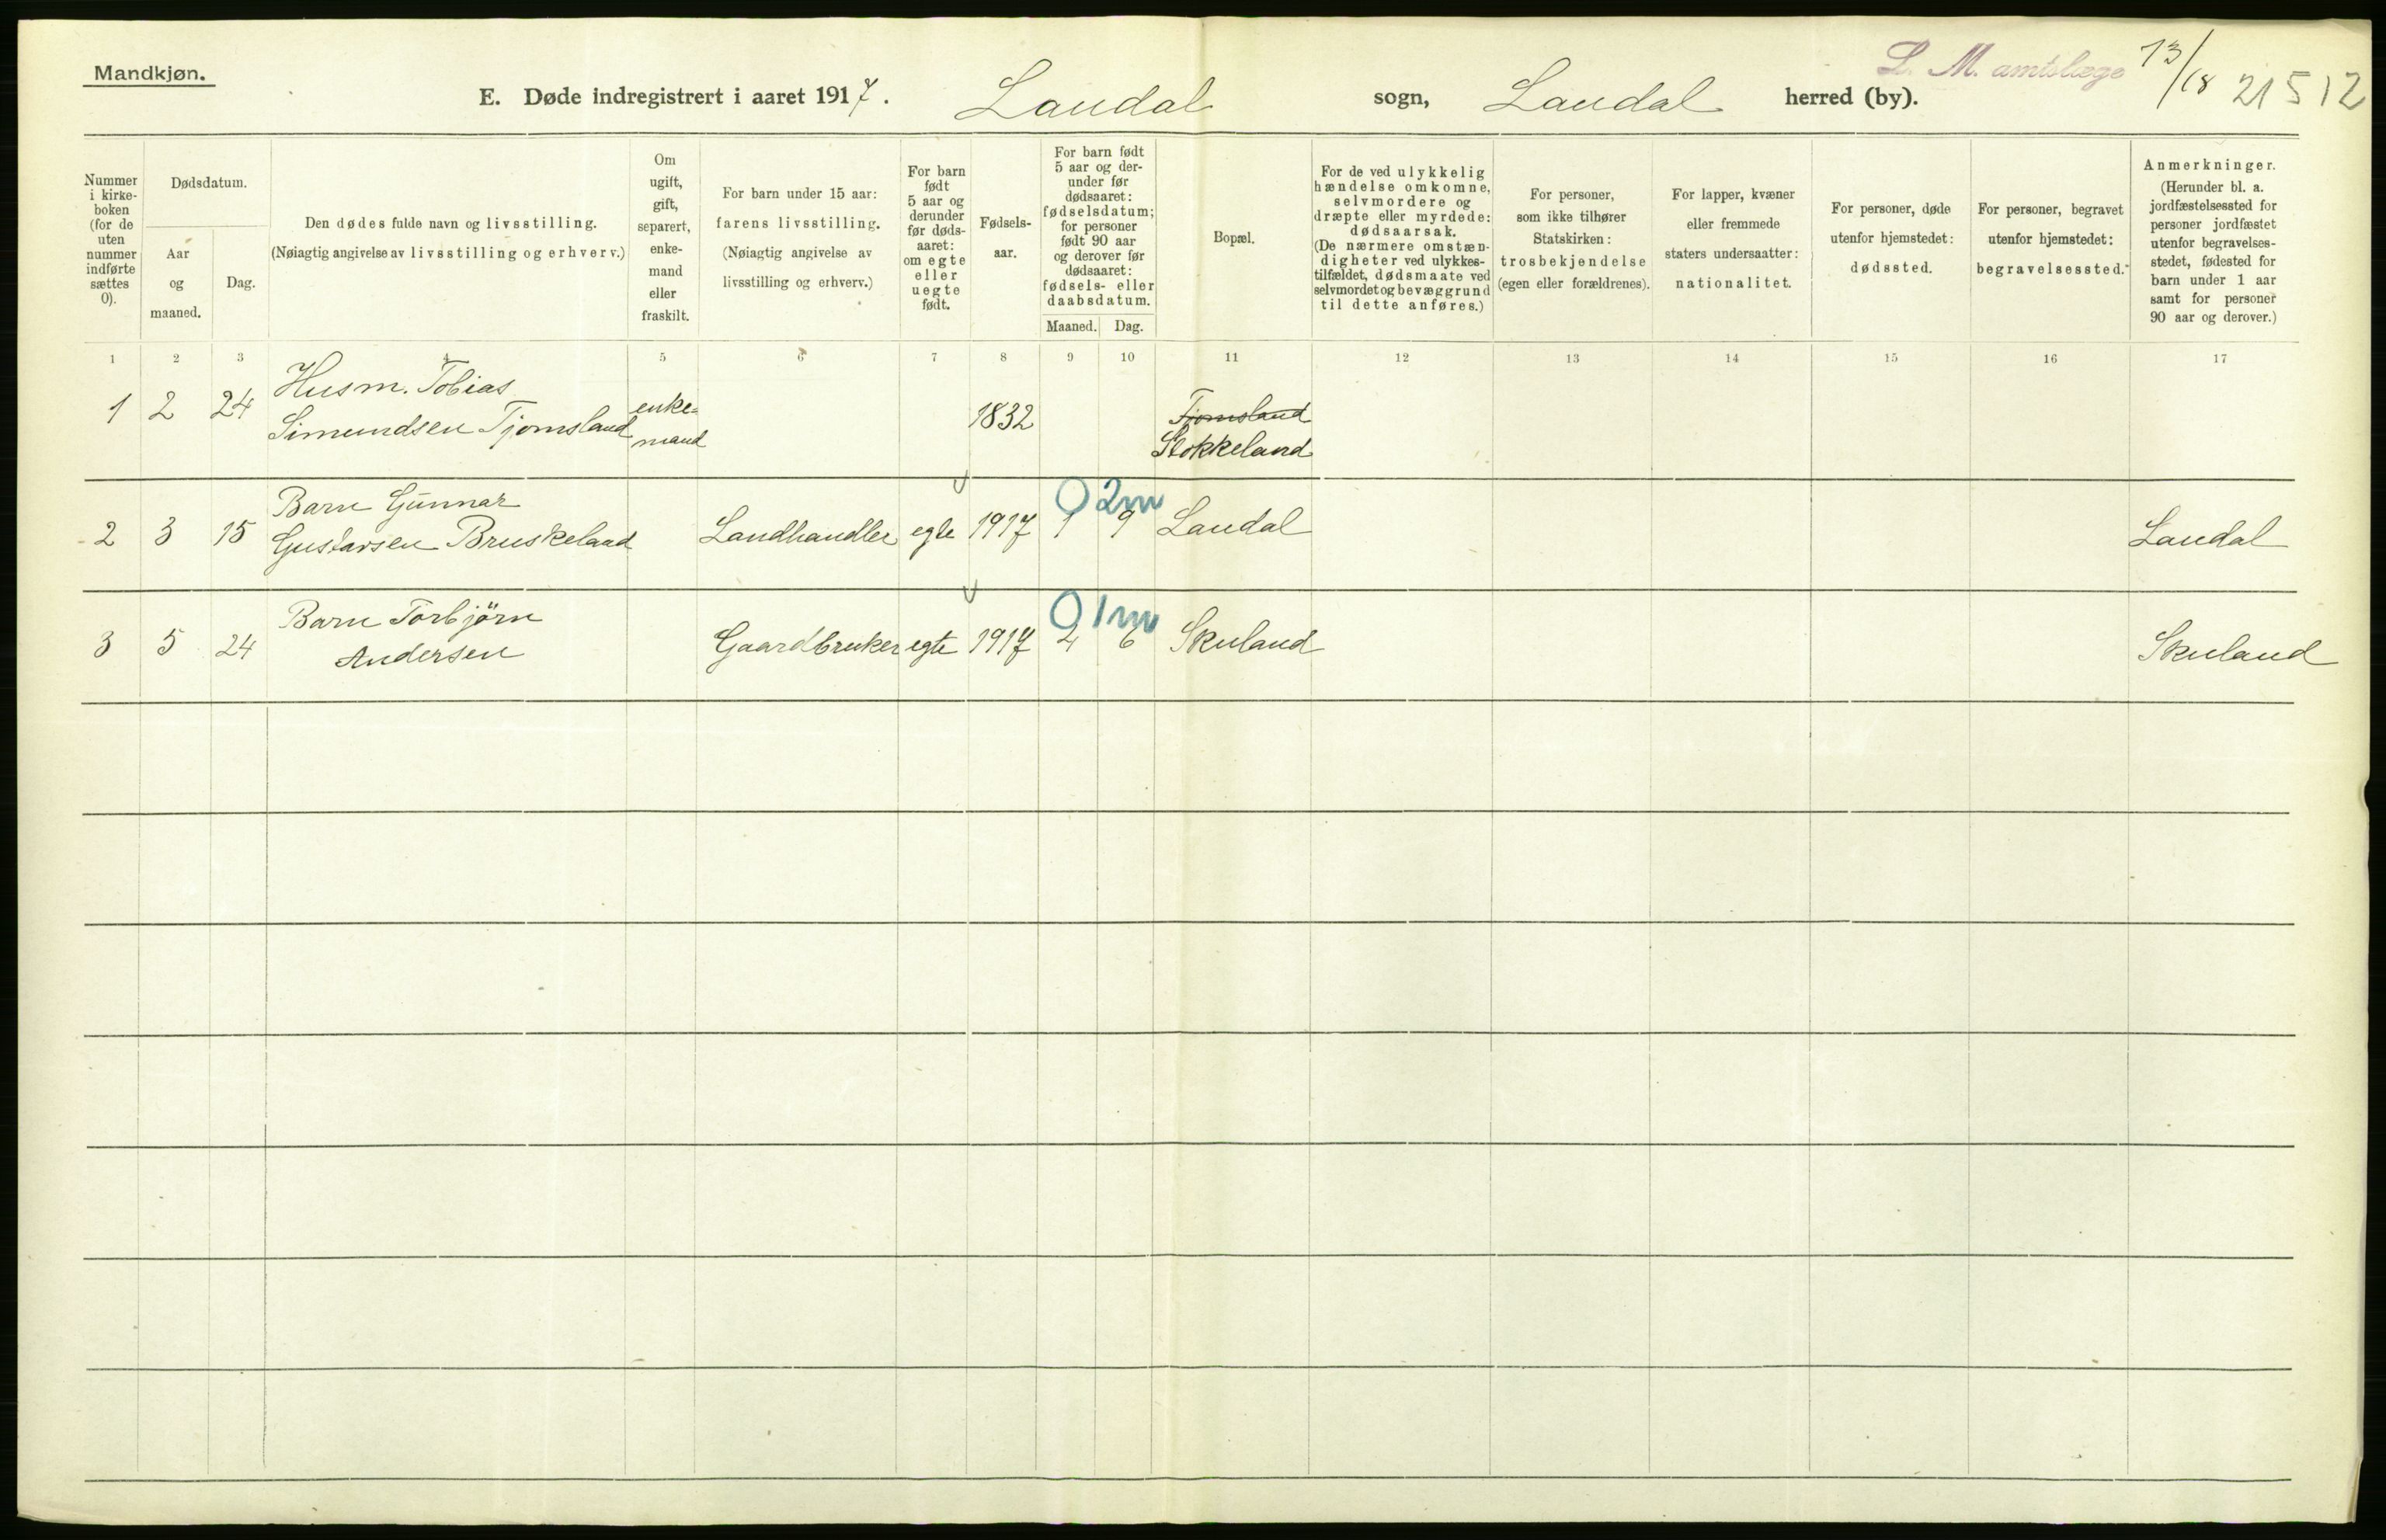 Mandkjøn.
E. Døde indregistrert i aaret 1917. Laudal sogn, Laudal herred (by).
L. M. amtslæge 13/18 21512
Nummer
i kirke-
boken
(for de
uten
nummer
indførte
sættes
0).
Dødsdatum.
Aar
og
maaned.
Dag.
Den dødes fulde navn og livsstilling.
(Nøiagtig angivelse av livsstilling og erhverv.)
Om
ugift,
gift,
separert,
enke-
mand
eller
fraskilt.
For barn under 15 aar:
farens livsstilling.
(Nøiagtig angivelse av
livsstilling og erhverv.)
For barn
født
5 aar og
derunder
før døds-
aaret:
om egte
eller
uegte
født.
Fødsels-
aar.
For barn født
5 aar og der-
under før
dødsaaret:
fødselsdatum;
for personer
født 90 aar
og derover før
dødsaaret:
fødsels- eller
daabsdatum.
Maaned. Dag.
Bopæl.
For de ved ulykkelig
hændelse omkomne,
selvmordere og
dræpte eller myrdede:
dødsaarsak.
(De nærmere omstæn-
digheter ved ulykkes-
tilfældet, dødsmaate ved
selvmordet og bevæggrund
til dette anføres.)
For personer,
som ikke tilhører
Statskirken:
trosbekjendelse
(egen eller forældrenes).
For lapper, kvæner
eller fremmede
staters undersaatter:
nationalitet.
For personer, døde
utenfor hjemstedet:
dødssted.
For personer, begravet
utenfor hjemstedet:
begravelsessted.
Anmerkninger.
(Herunder bl. a.
jordfæstelsessted for
personer jordfæstet
utenfor begravelses-
stedet, fødested for
barn under 1 aar
samt for personer
90 aar og derover.)
1 2 3 4 5 6 7 8 9 10 11 12 13 14 15 16 17
Husm. Tobias
1 2 24 Simundsen Tjomsland enke-
mand 1832 Tjomsland
Stokkeland
Barn Gunnar 0 2m
2 3 15 Gustavsen Bruskeland Landhandler egte 1917 1 9 Laudal Laudal
Barn Torbjörn 0 1m
3 5 24 Andersen Gaardbruker egte 1917 4 6 Skuland Skuland